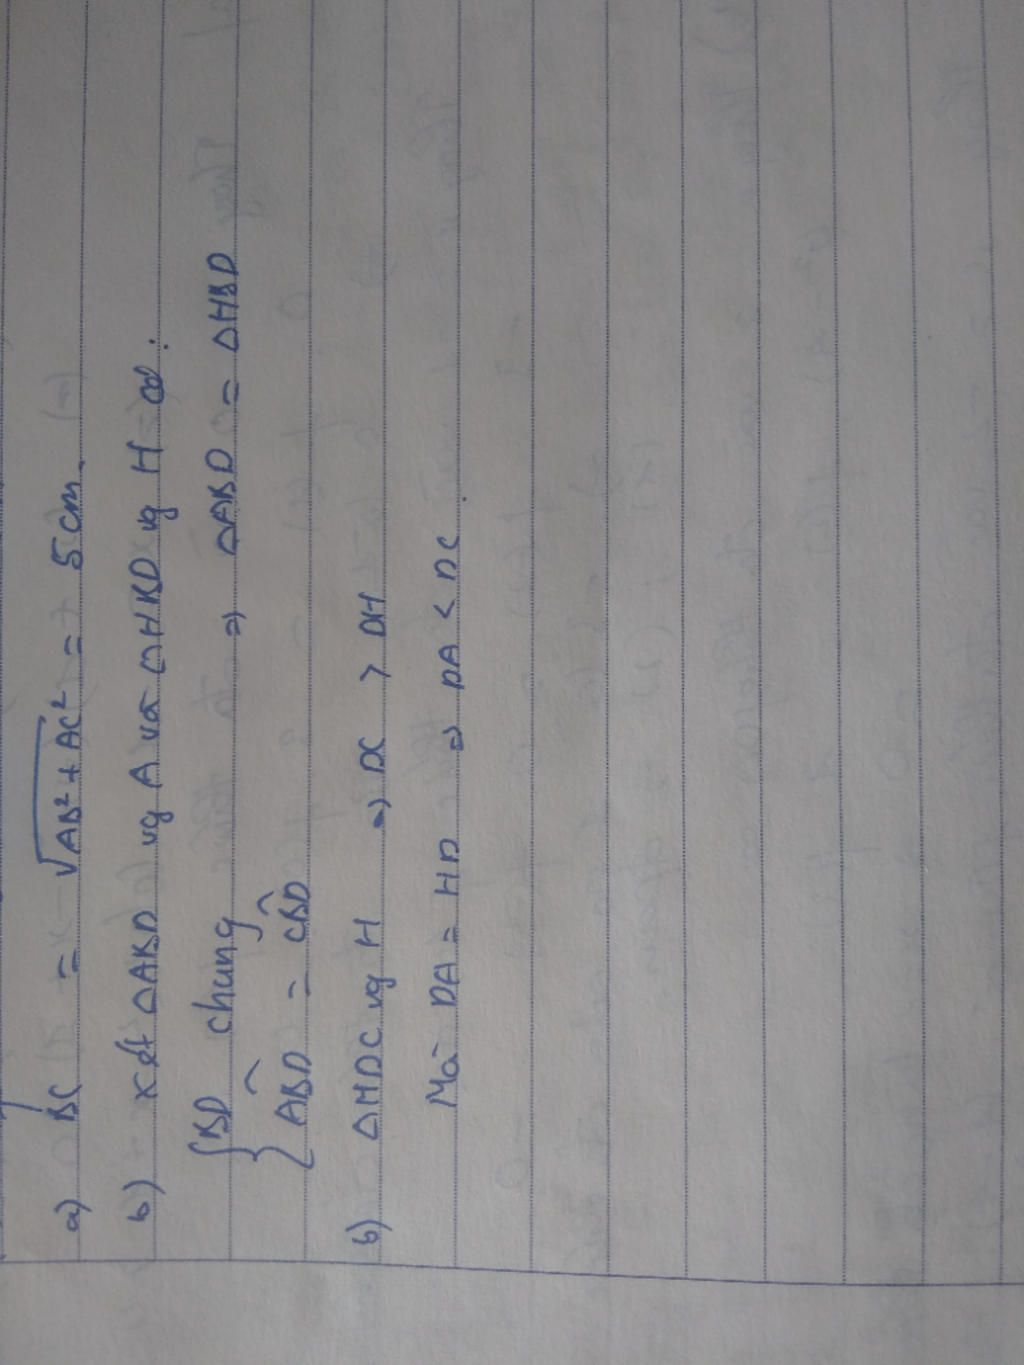 a) BC = √AB² + AC² = 5cm.
b) xét ΔABD vg A và ΔHBD vg H có:
{BD chung ⇒ ΔABD = ΔHBD
ABD̂ = CBD̂
b) ΔHDC vg H ⇒ DC > DH
Mà DA = HD ⇒ DA < DC.